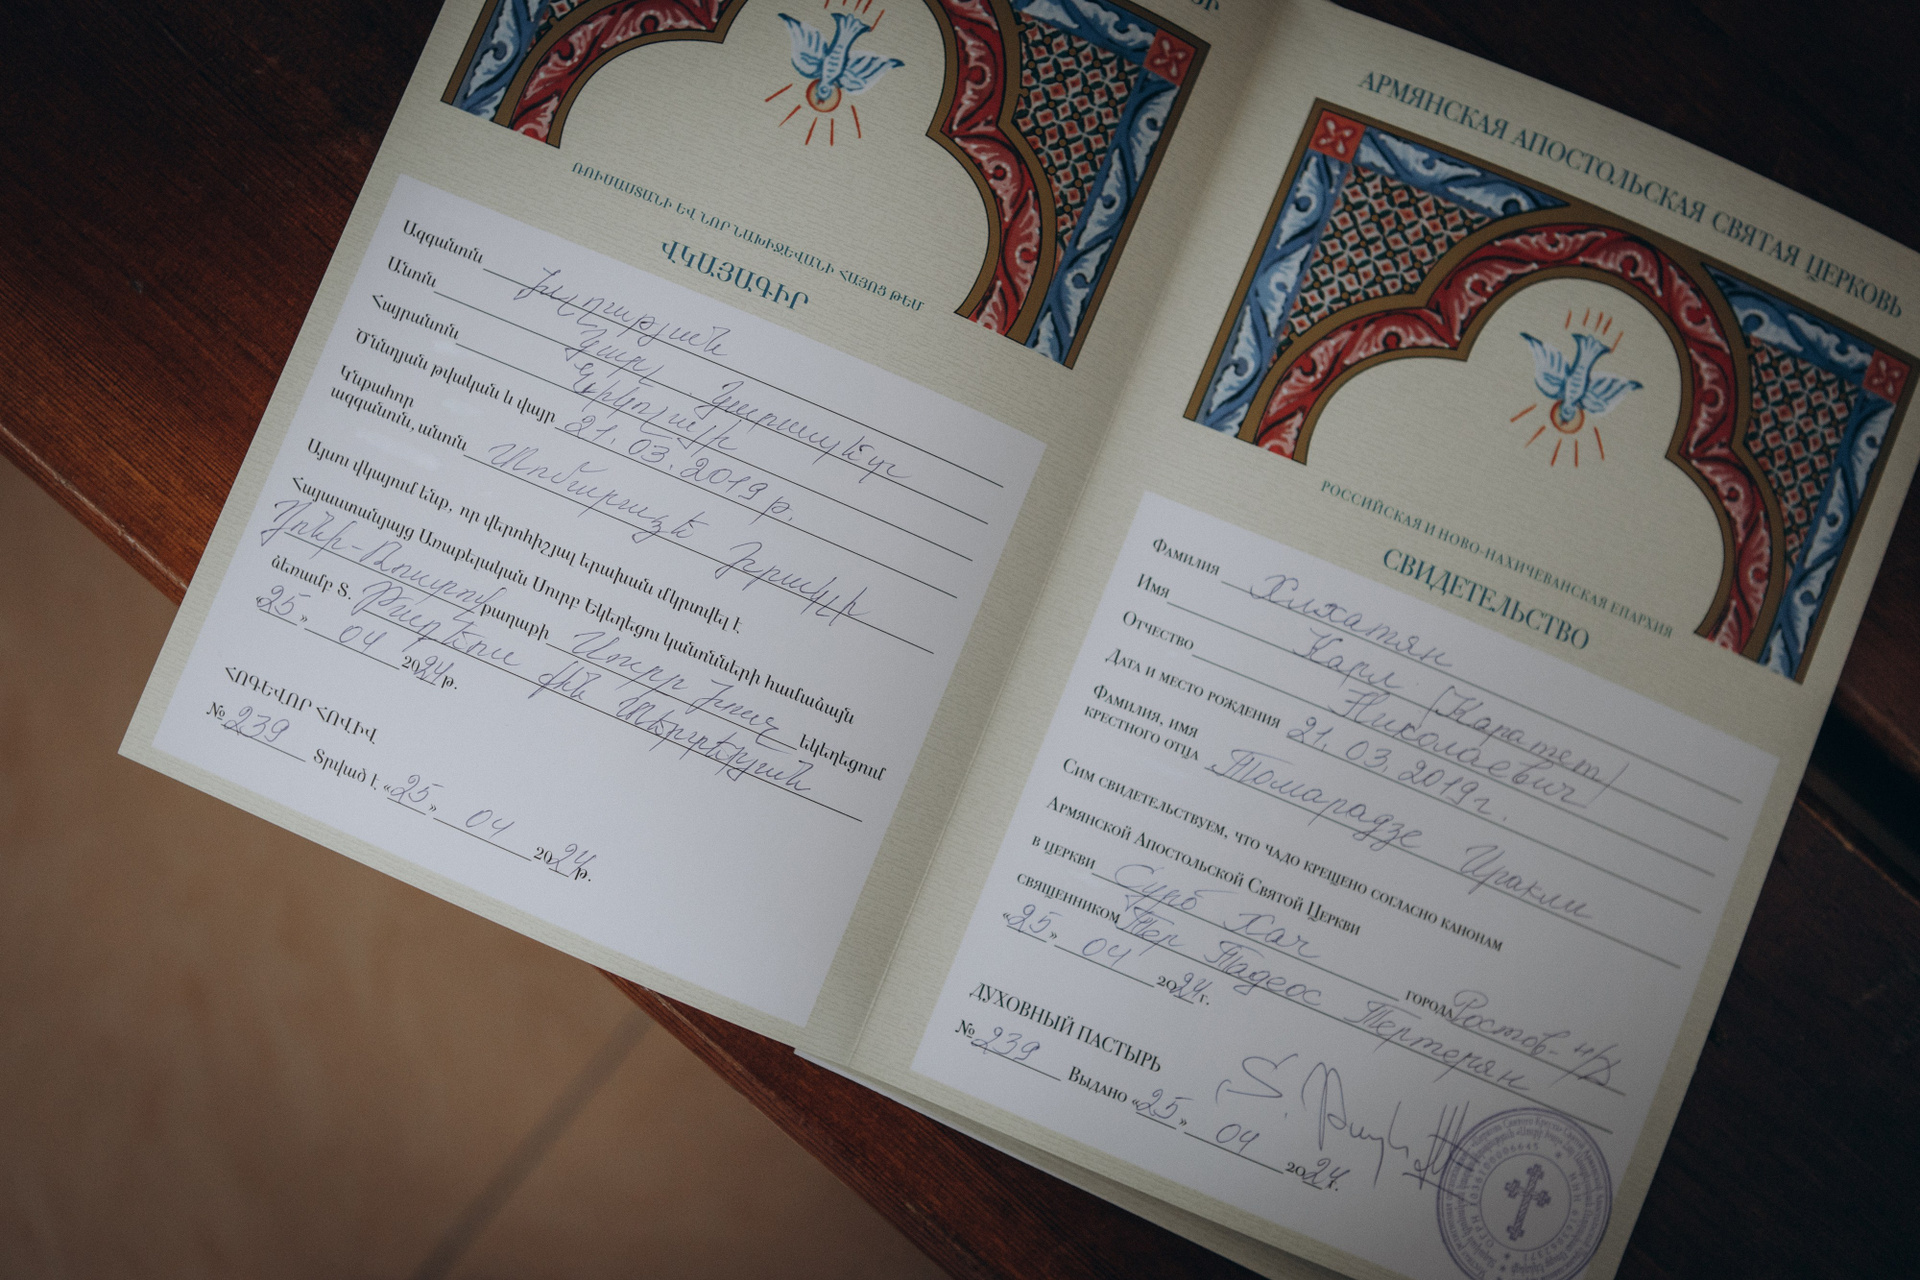 ՌՈՒՍԱՍՏԱՆԻ ԵՎ ՆՈՐ ՆԱԽԻՋԵՎԱՆԻ ՀԱՅՈՑ ԹԵՄ
ՎԿԱՅԱԳԻՐ
Ազգանուն
Անուն Կարլ Կարապետ
Հայրանուն Նիկոլայի
Ծննդյան թվական և վայր 21.03.2019 թ.
Կնքահոր
ազգանուն, անուն Թոմարաձե Իրակլի
Այսու վկայում ենք, որ վերոհիշյալ երախան մկրտվել է
Հայաստանյայց Առաքելական Սուրբ Եկեղեցու կանոնների համաձայն
քաղաքի Սուրբ Խաչ եկեղեցում
ձեռամբ Տ. Թադեոս
«25» 04 2024 թ.
ՀՈԳԵՎՈՐ ՀՈՎԻՎ
№ 239 Տրված է «25» 04 2024 թ.
АРМЯНСКАЯ АПОСТОЛЬСКАЯ СВЯТАЯ ЦЕРКОВЬ
РОССИЙСКАЯ И НОВО-НАХИЧЕВАНСКАЯ ЕПАРХИЯ
СВИДЕТЕЛЬСТВО
Фамилия
Имя Карл (Карапет)
Отчество Николаевич
Дата и место рождения 21.03.2019г.
Фамилия, имя
крестного отца Томарадзе Иракли
Сим свидетельствуем, что чадо крещено согласно канонам
Армянской Апостольской Святой Церкви
в церкви Сурб Хач города Ростов-н/Д
священником Тер Тадеос Пертерян
«25» 04 2024 г.
ДУХОВНЫЙ ПАСТЫРЬ
№ 239 Выдано «25» 04 2024 г.